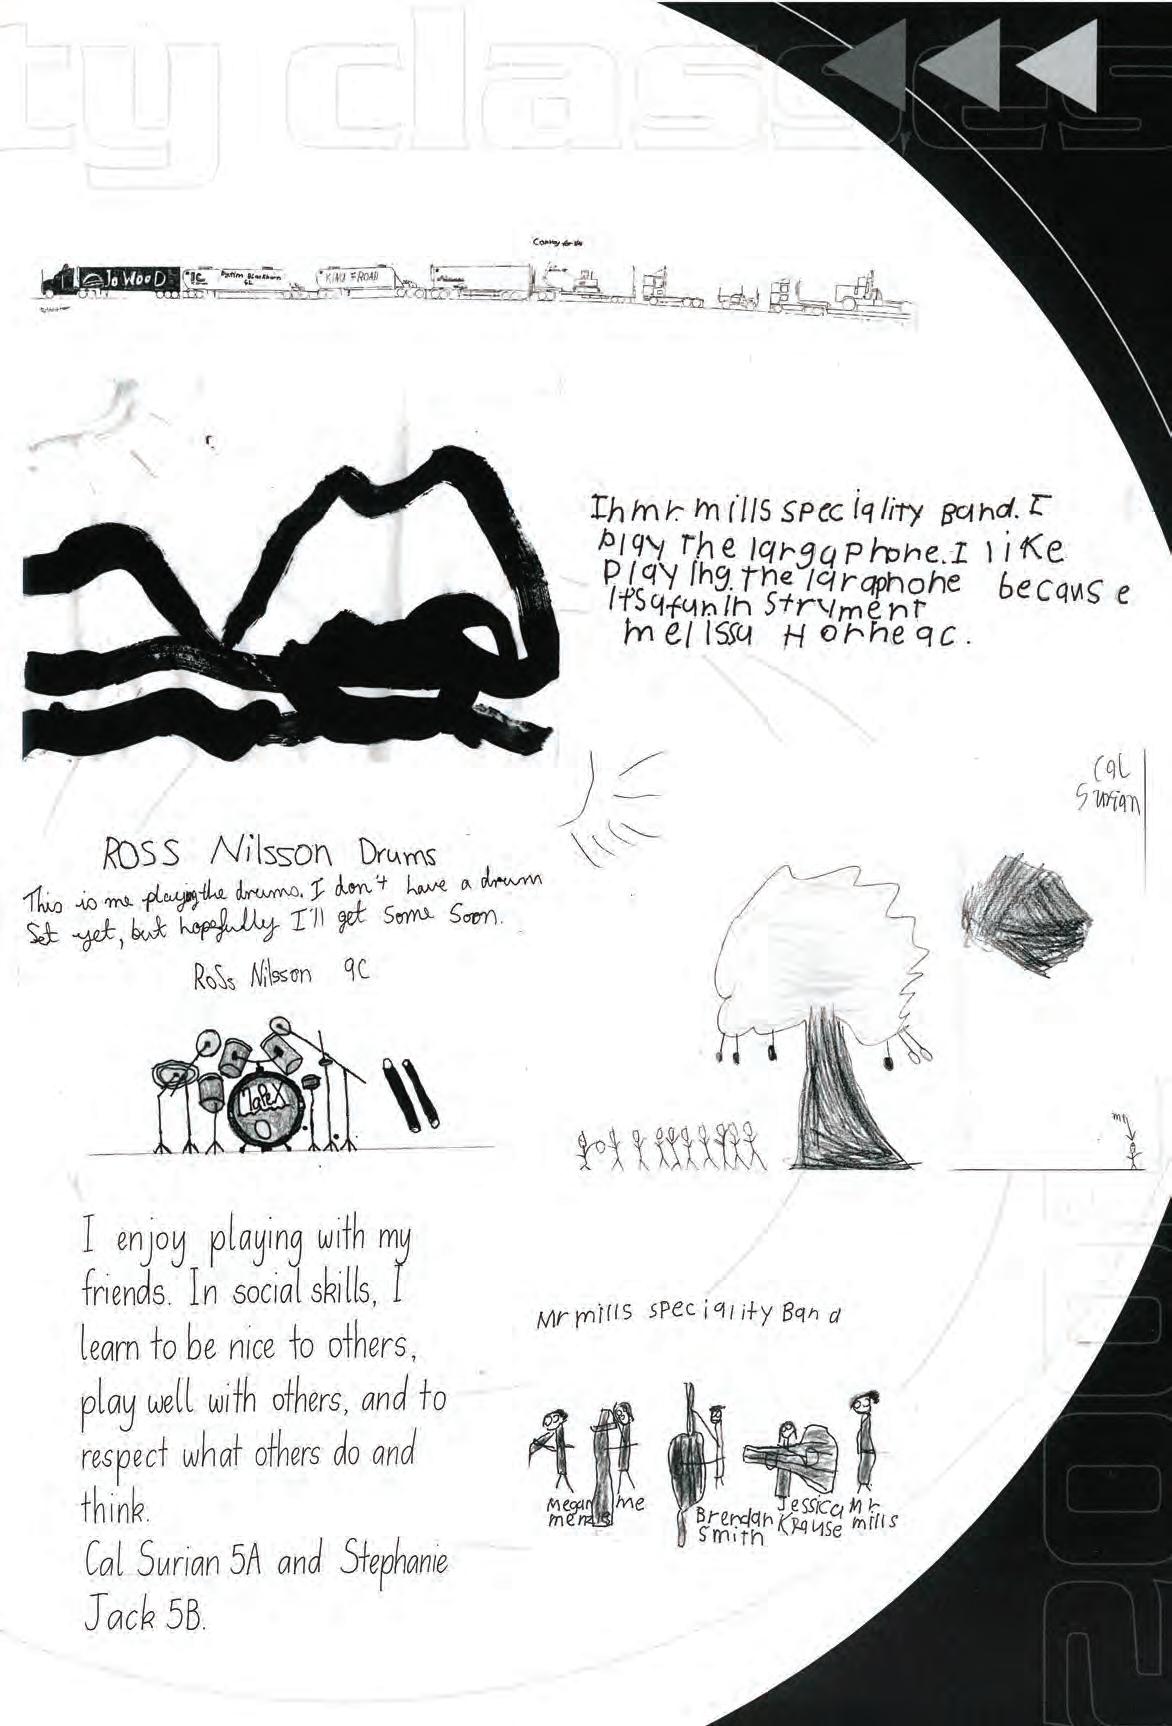 ty classes
Convoy for the
Jo WooD
KING F ROAD
In mr. mills speciality Band. I
play The largaphone. I like
playing. the laraphone because
It's a fun In stryment
melissa Horne 9c.
Cal
Surian
ROSS Nilsson Drums
This is me playing the drums. I don't have a drum
Set yet, but hopefully I'll get some soon.
Ross Nilsson 9C
MaPeX
me
I enjoy playing with my
friends. In social skills, I
learn to be nice to others,
play well with others, and to
respect what others do and
think.
Cal Surian 5A and Stephanie
Jack 5B.
Mr mills speciality Band
Megan
me
Brendan
Smith
Jessica
Krause
Mr
mills